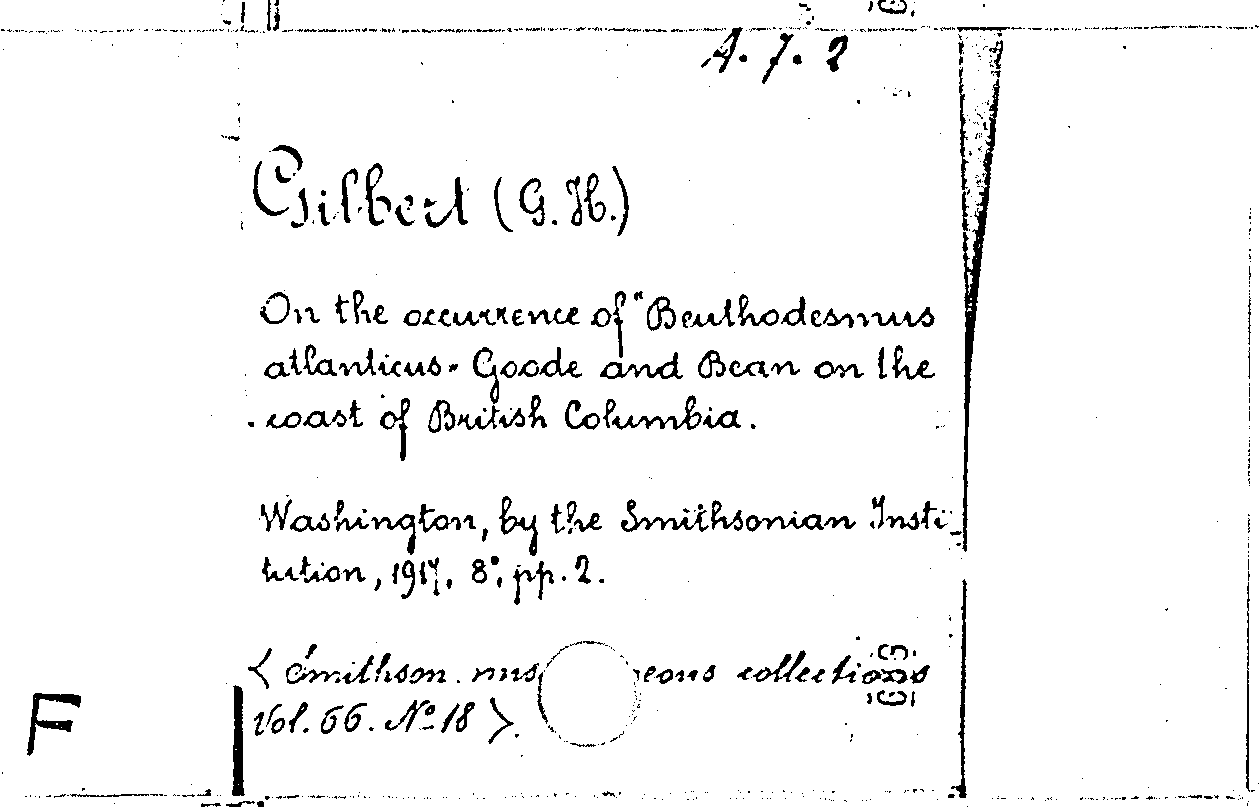 A. 7. 2
Gilbert (G. H.)
On the occurrence of "Benthodesmus
atlanticus" Goode and Bean on the
coast of British Columbia.
Washington, by the Smithsonian Insti-
tution, 1917. 8°, pp. 2.
< Smithson. collections
Vol. 66. No 18 >.
F